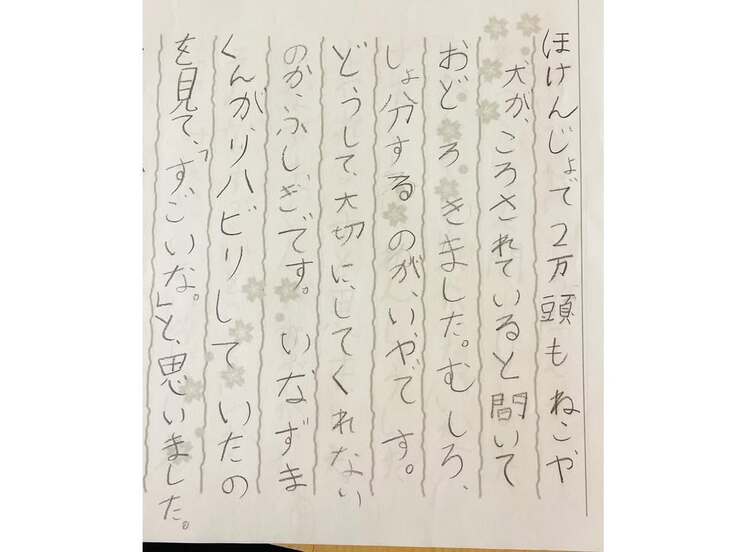 ほけんじょで2万頭もねこや
犬が、ころされていると聞いて
おどろきました。むしろ、
しょ分するのが、いやです。
どうして、大切に、してくれない
のか、ふしぎです。いなずま
くんが、リハビリしていたの
を見て、「すごいな。」と、思いました。